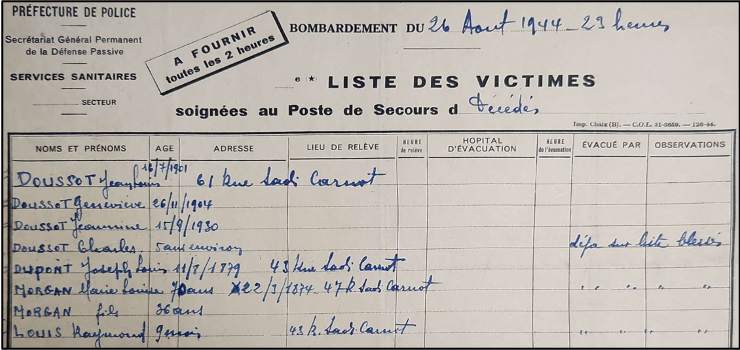 PRÉFECTURE DE POLICE
Secrétariat Général Permanent
de la Défense Passive
SERVICES SANITAIRES
SECTEUR
A FOURNIR
toutes les 2 heures
BOMBARDEMENT DU 26 Aout 1944 - 23 heures
e (*) LISTE DES VICTIMES
soignées au Poste de Secours d Décédés
Imp. Chaix (B). — C.O.L. 31-3659. — 126-44.
NOMS ET PRÉNOMS AGE ADRESSE LIEU DE RELÈVE HEURE de relève HOPITAL D'ÉVACUATION HEURE de l'évacuation ÉVACUÉ PAR OBSERVATIONS
DOUSSOT Jean Louis 16/7/1901 61 Rue Sadi Carnot
DOUSSOT Geneviève 26/11/1904
DOUSSOT Jeannine 15/9/1930
DOUSSOT Charles 5 ans environ déja sur liste blessés
DUPONT Joseph Louis 11/3/1879 43 Rue Sadi Carnot
MORGAN Marie Louise 70 ans 22/3/1874 47 R. Sadi Carnot " " " "
MORGAN fils 36 ans
LOUIS Raymond 9 mois 43 R. Sadi Carnot " " " "